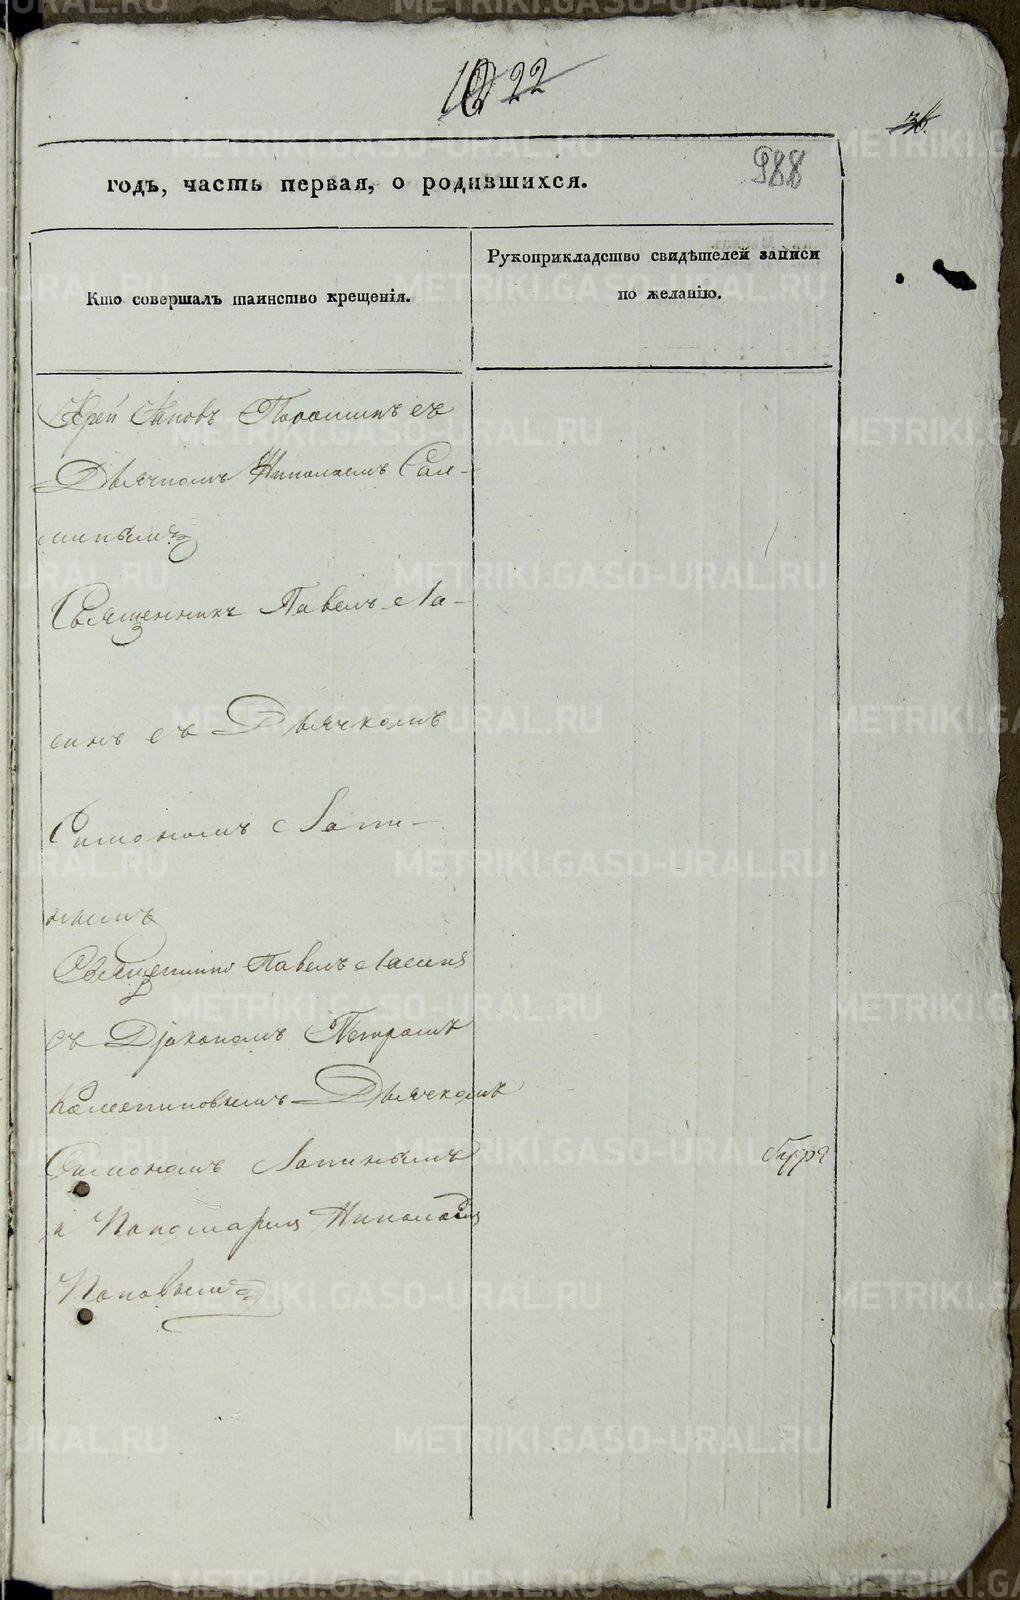 22
36.
988
годъ, часть первая, о родившихся.
Кто совершалъ таинство крещенія.
Рукоприкладство свидѣтелей записи
по желанію.
Іерей Іаковъ Поромин съ
Дьячкомъ Николаемъ Сале-
Священникъ Павелъ Ла-
синъ съ Дьячкомъ
Симономъ Лапи-
нымъ
Священникъ Павелъ Ласинъ
съ Діакономъ Петромъ
Дьячкомъ
Симономъ Лапинымъ
и Пономаремъ Николаемъ
Поповымъ
METRIKI.GASO-URAL.RU